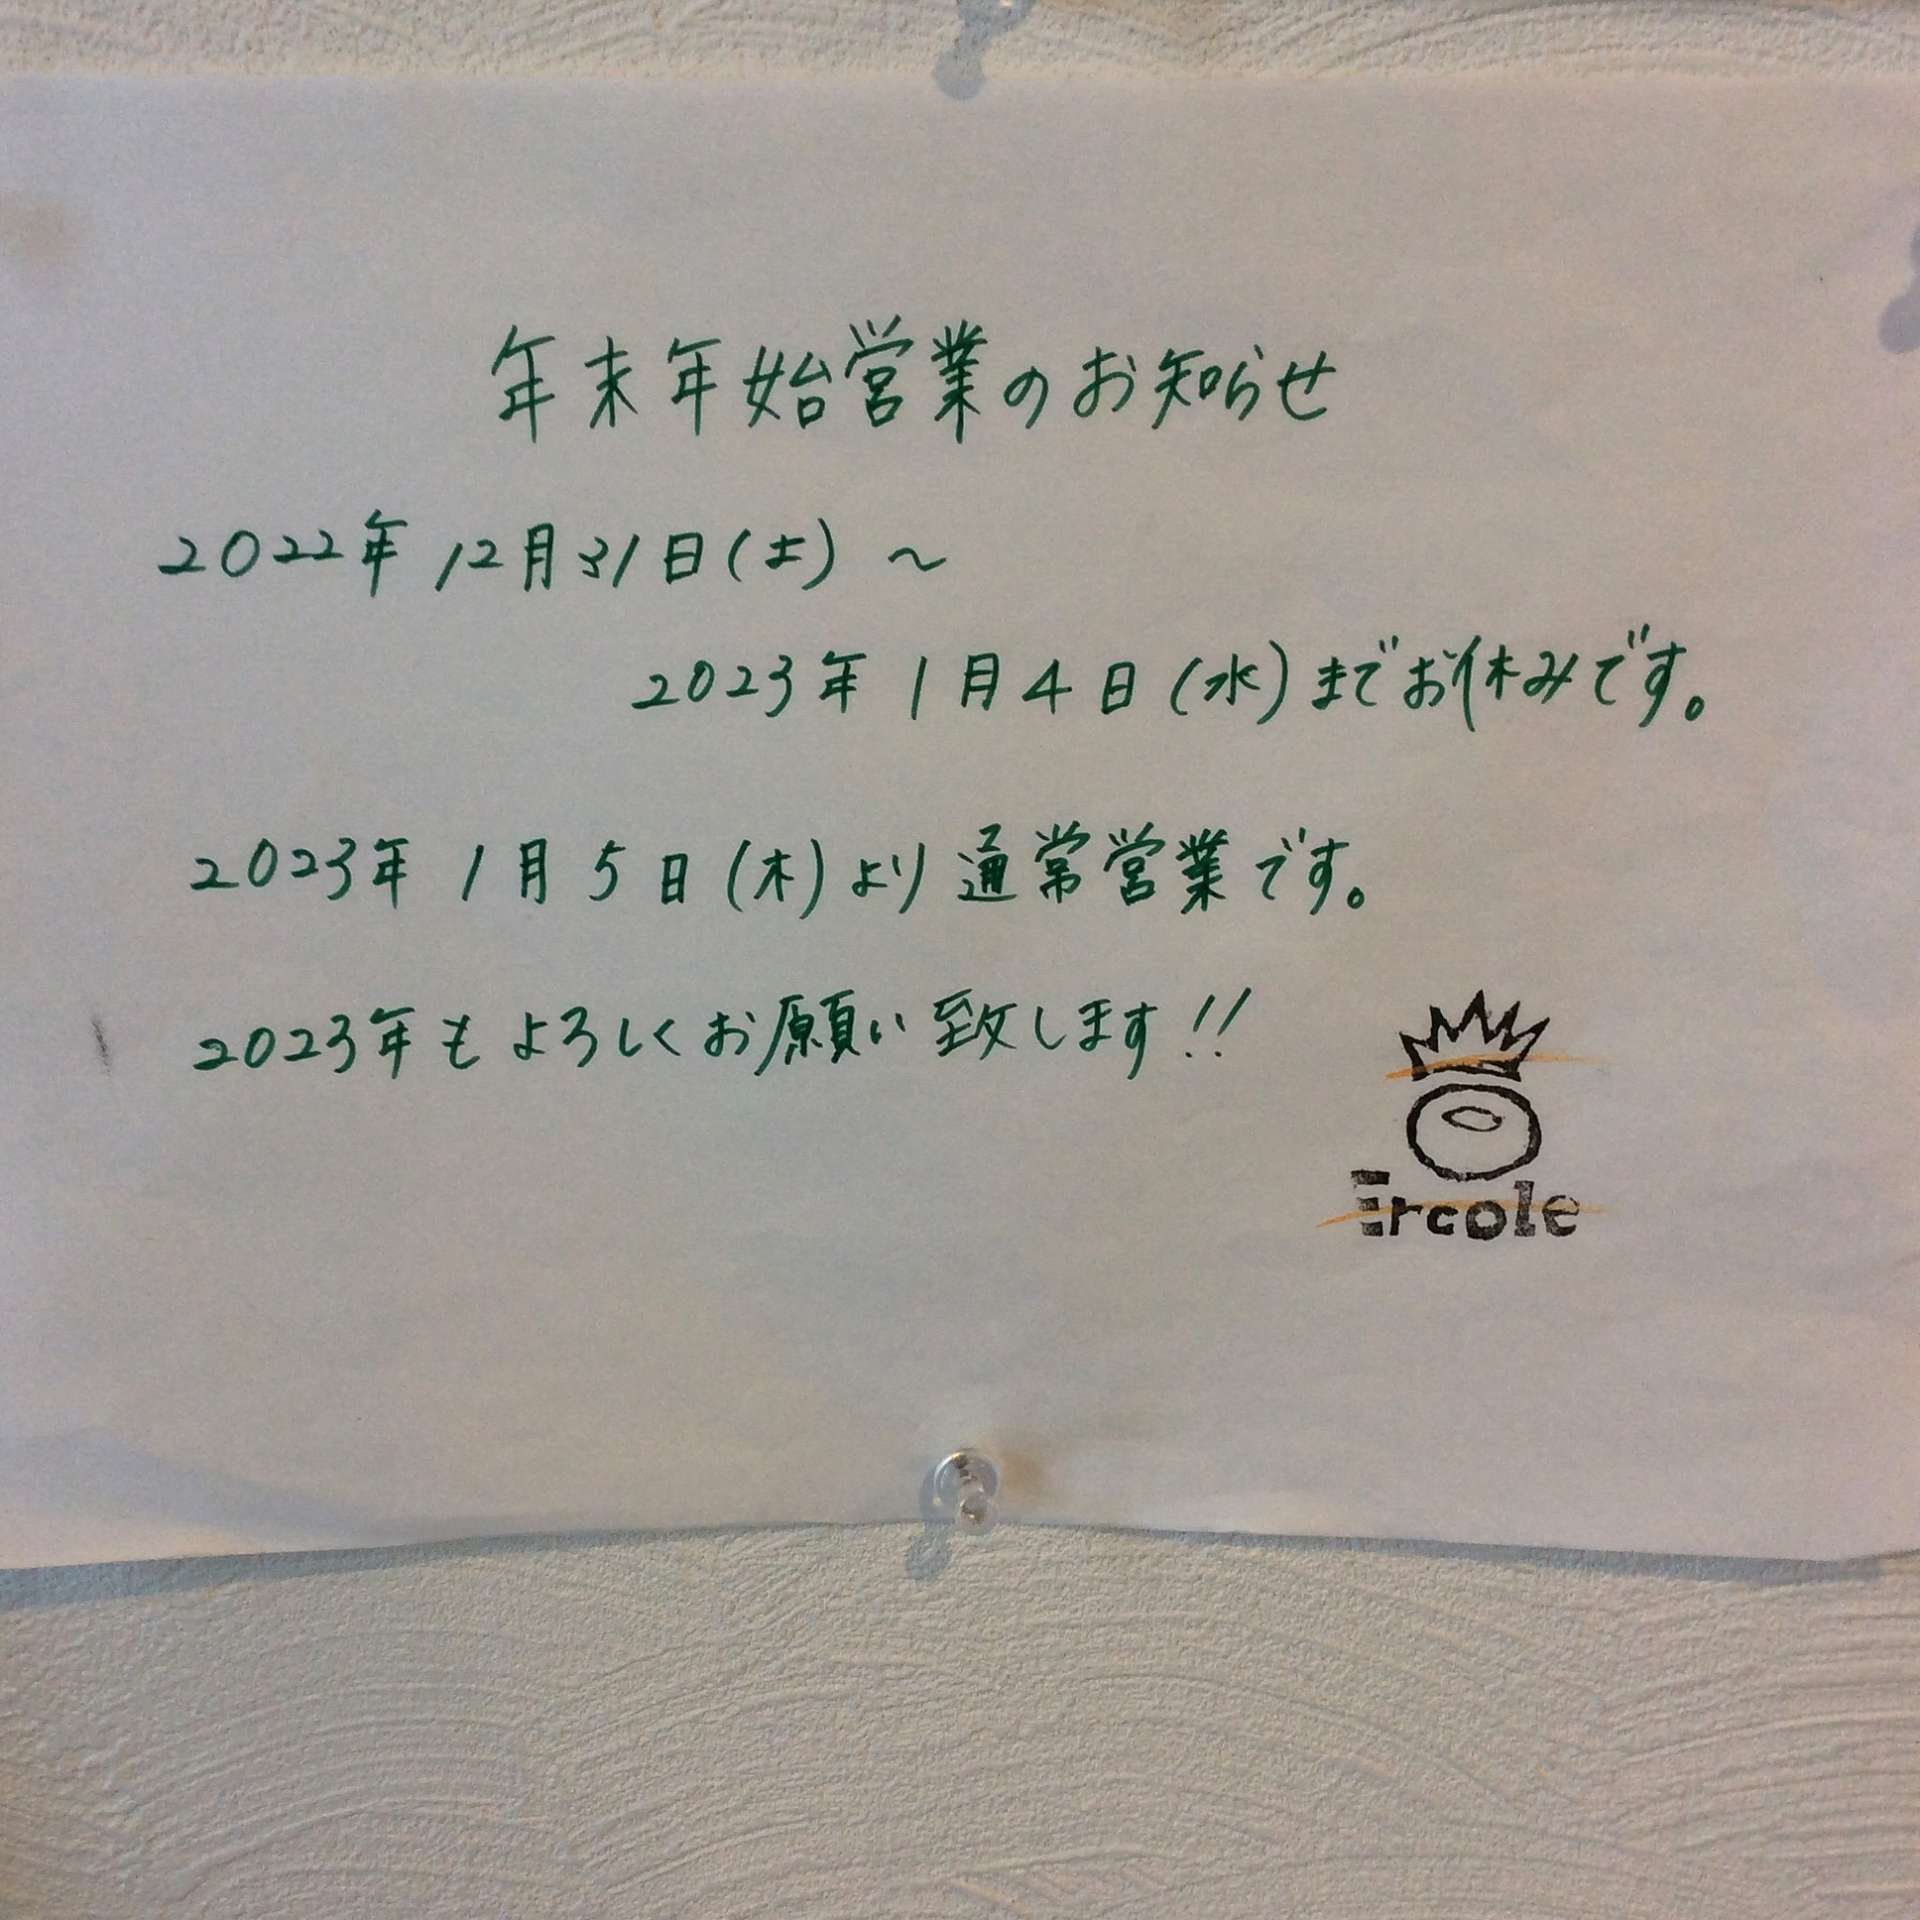 年末年始営業のお知らせ
2022年12月31日(土)～
2023年1月4日(水)までお休みです。
2023年1月5日(木)より通常営業です。
2023年もよろしくお願い致します!!
Ercole